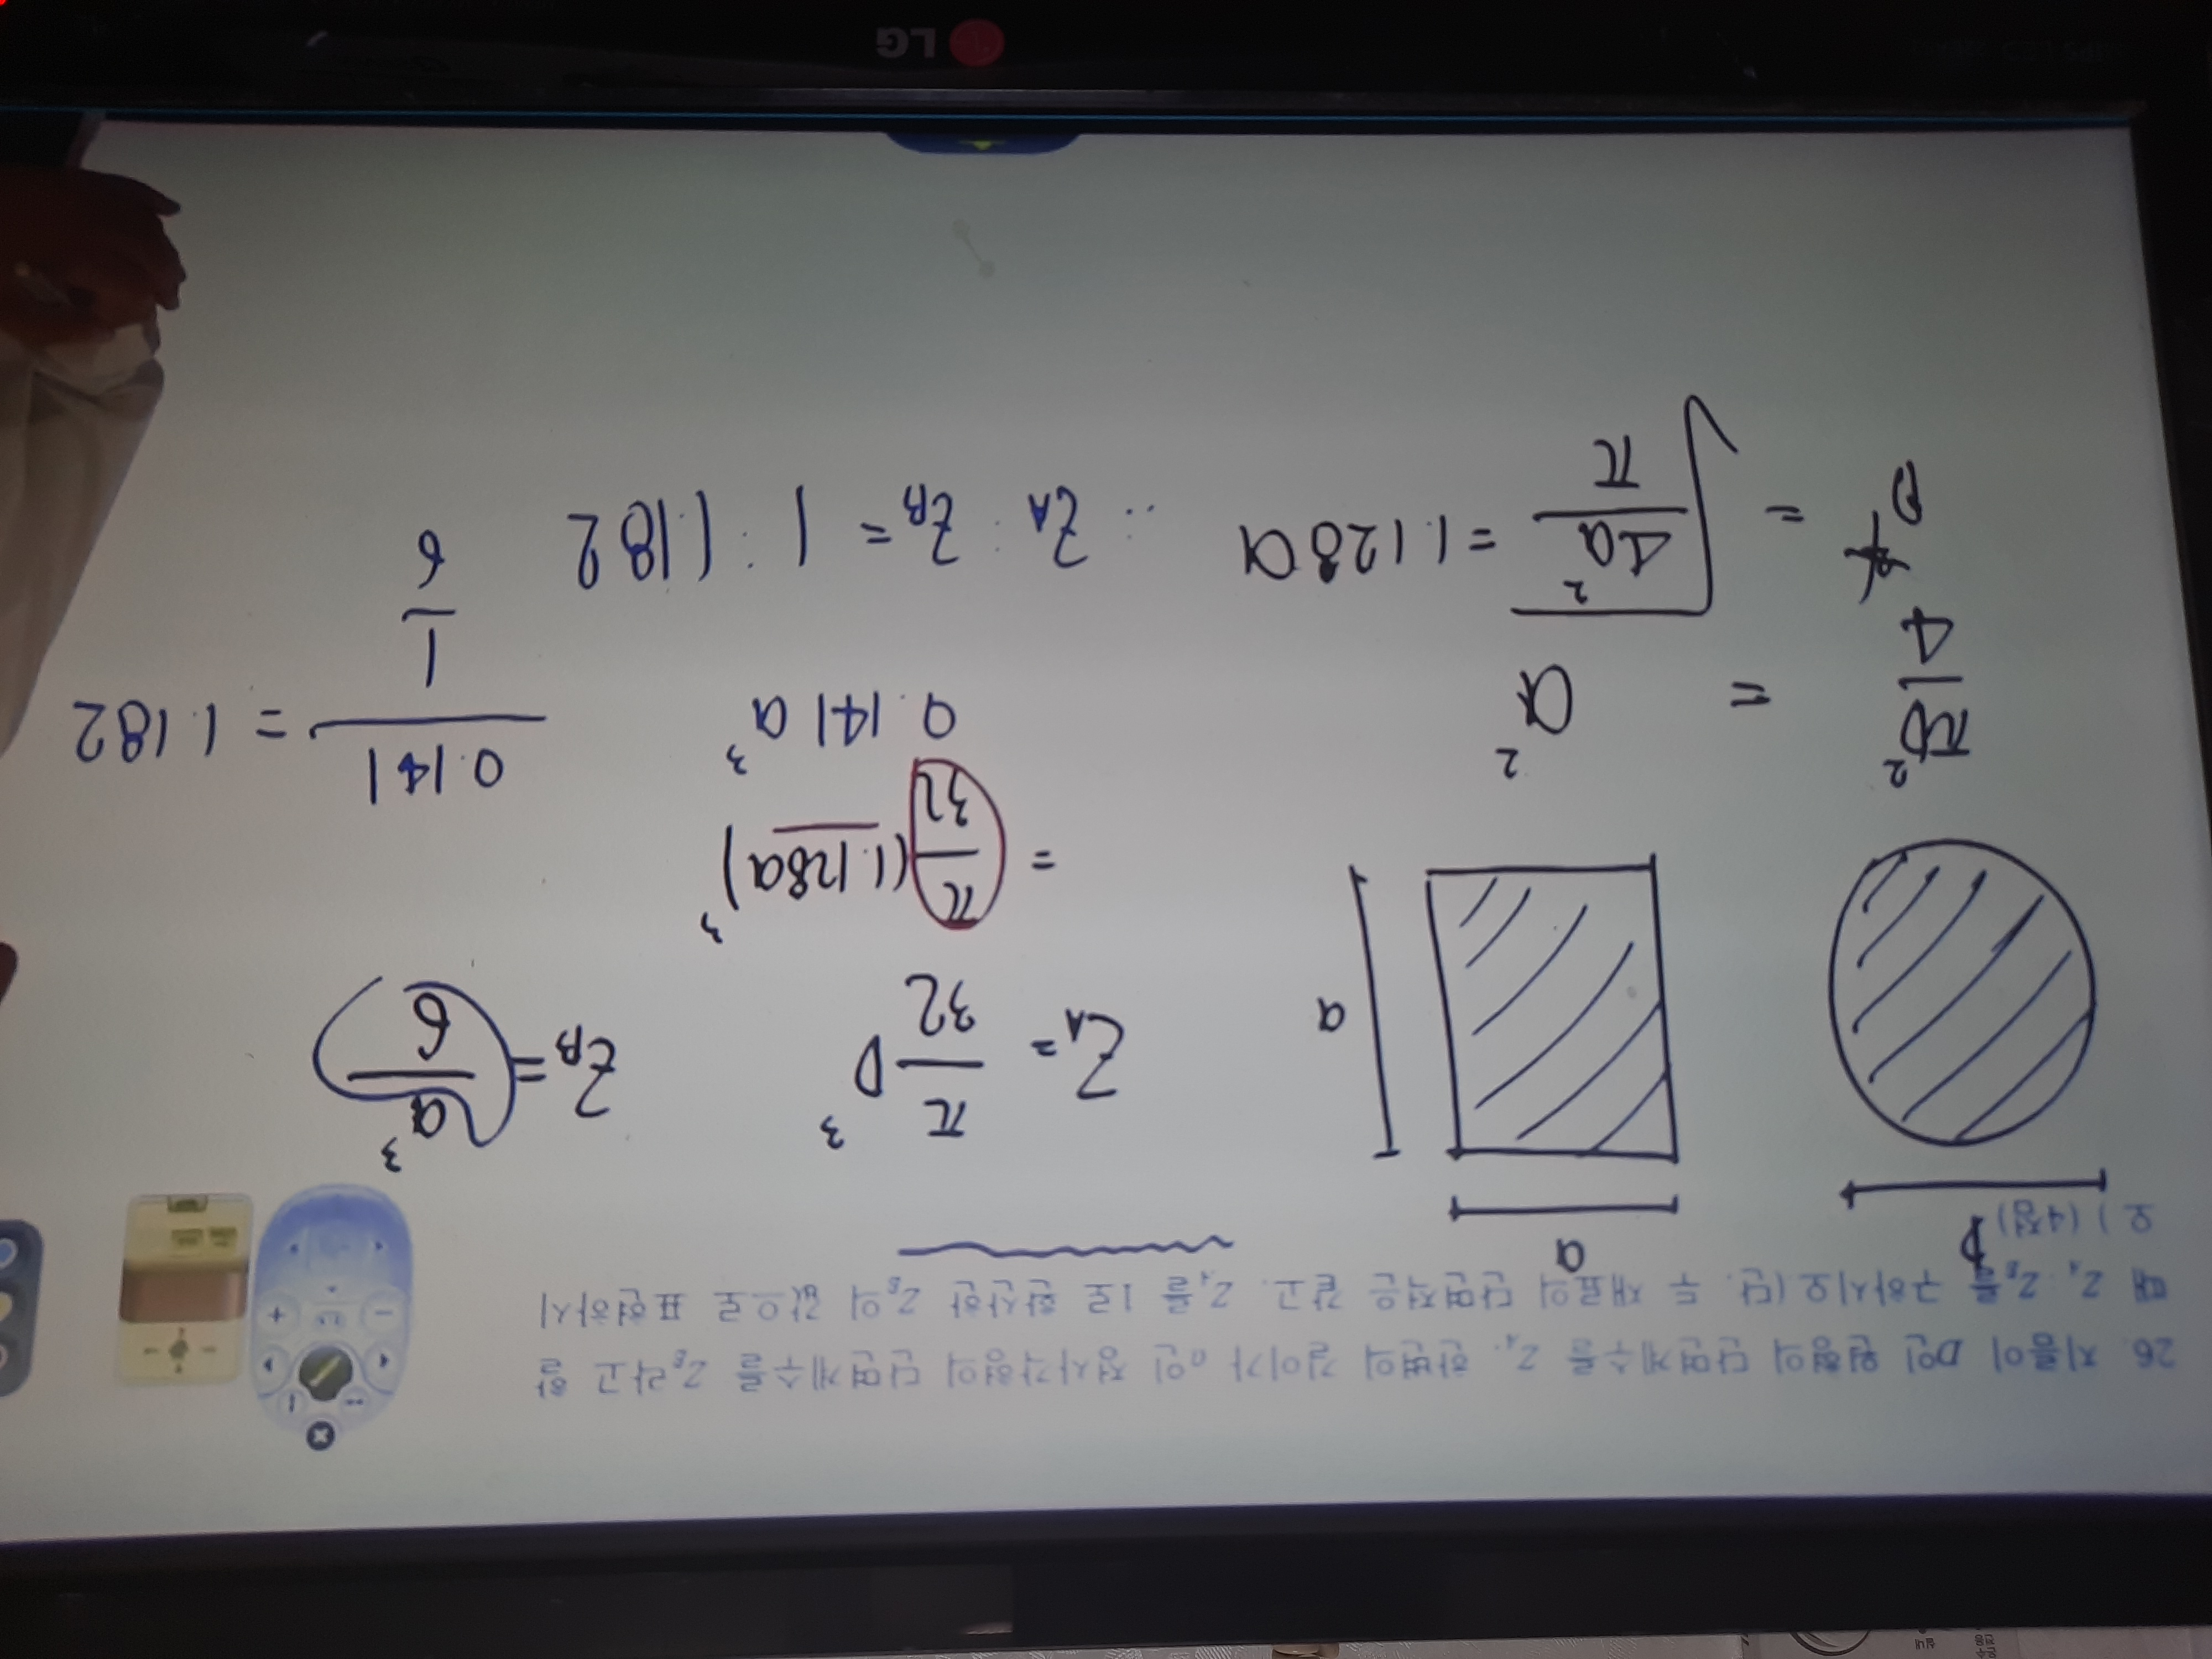 26. 지름이 D인 원형의 단면계수를 Z_A, 한변의 길이가 a인 정사각형의 단면계수를 Z_B라고 할
때 Z_A : Z_B를 구하시오(단, 두 재료의 단면적은 같고, Z_A를 1로 환산한 Z_B의 값으로 표현하시
오.) (4점)
D
a
a
Z_A = π/32 D³
Z_B = a³/6
= π/32 (1.128a)³
0.141 a³
πD²/4 = a²
D = √(4a²/π) = 1.128a
0.141 / (1/6) = 1.182
∴ Z_A : Z_B = 1 : 1.182
LG